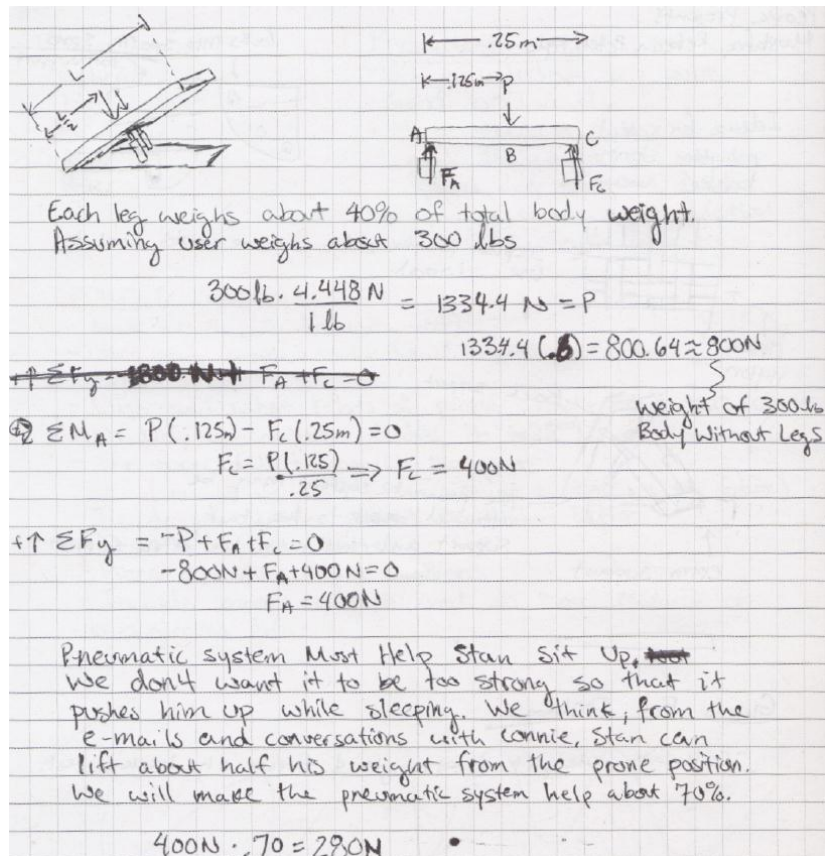 L
L/2
W
.25m
.125m
P
A
B
C
F_A
F_C
Each leg weighs about 40% of total body weight.
Assuming user weighs about 300 lbs
300 lb. 4.448 N / 1 lb = 1334.4 N = P
1334.4 (.6) = 800.64 ≈ 800N
+↑ ΣFy F_A + F_C = 0
weight of 300 lb
Body Without Legs
ΣM_A = P(.125m) - F_C(.25m) = 0
F_C = P(.125) / .25 => F_C = 400N
+↑ ΣFy = -P + F_A + F_C = 0
-800N + F_A + 400N = 0
F_A = 400N
Pneumatic system Must Help Stan Sit Up.
We don't want it to be too strong so that it
pushes him up while sleeping. We think, from the
e-mails and conversations with connie, Stan can
lift about half his weight from the prone position.
We will make the pneumatic system help about 70%.
400N · .70 = 280N